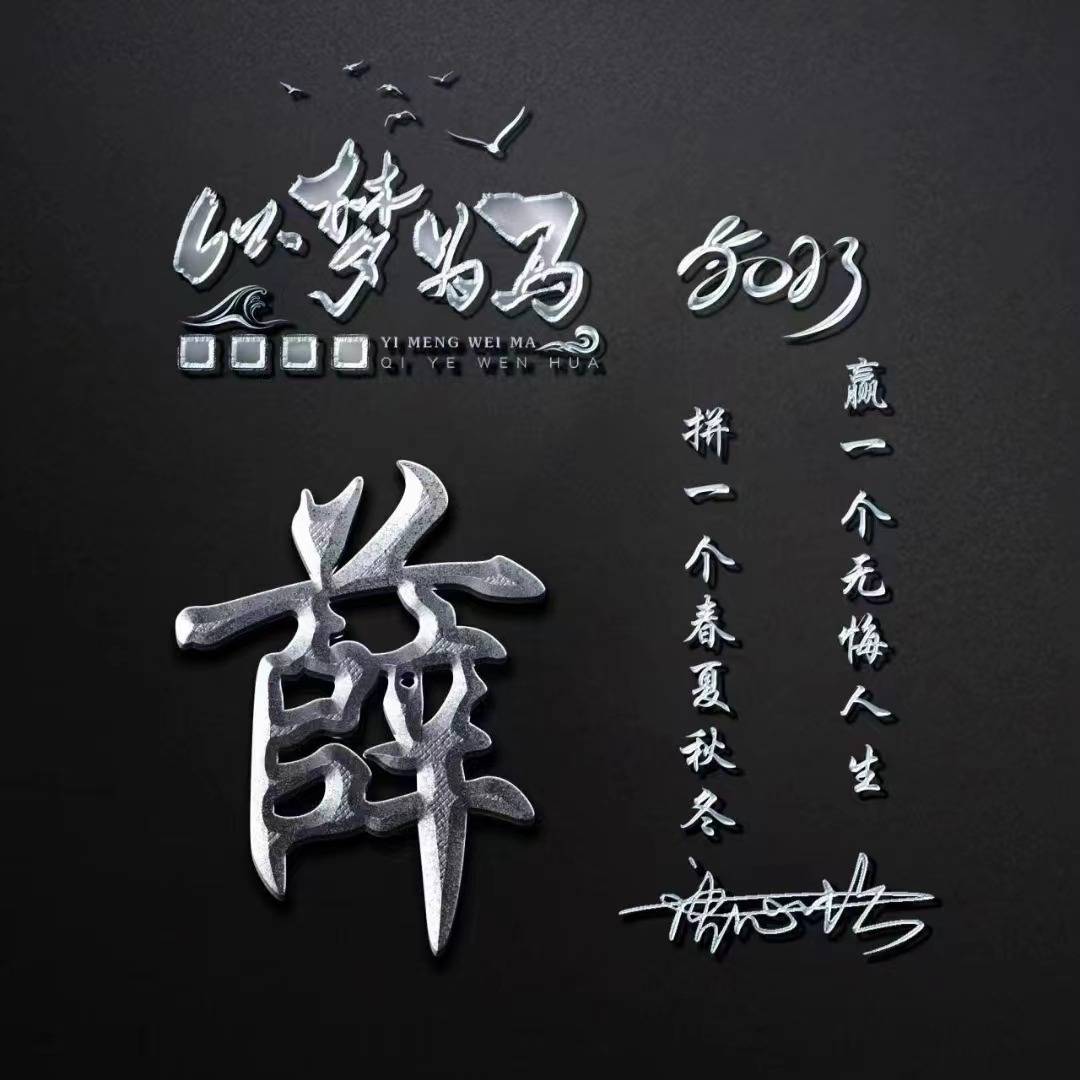 以梦为马
YI MENG WEI MA
QI YE WEN HUA
2023
赢一个无悔人生
拼一个春夏秋冬
薛